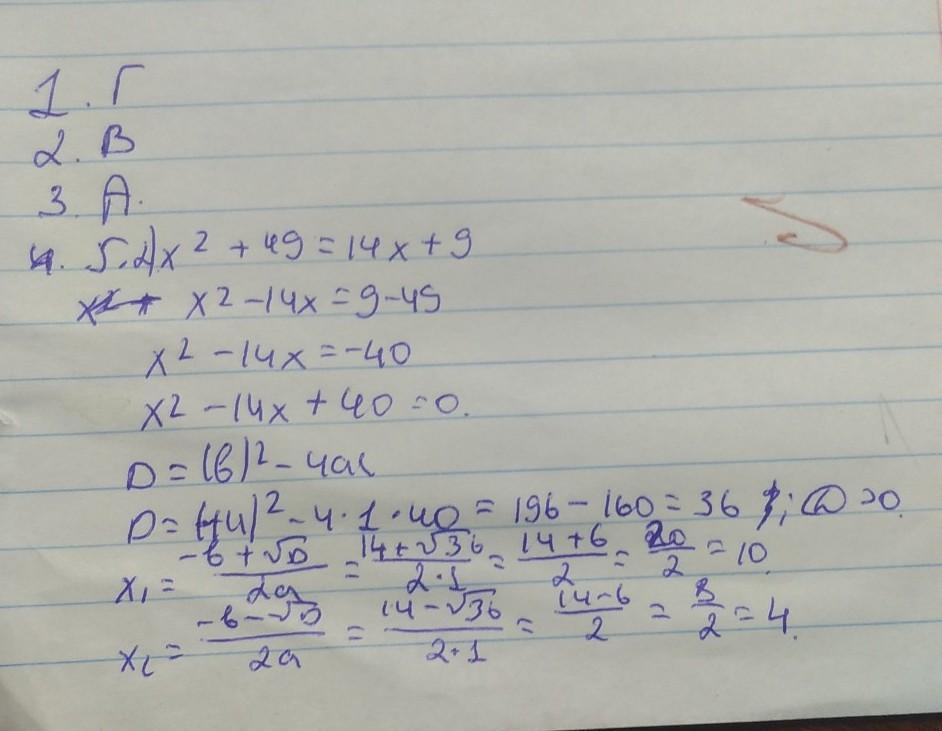 1. Г
2. В
3. А.
4. 5.2) x² + 49 = 14x + 9
x² - 14x = 9 - 49
x² - 14x = -40
x² - 14x + 40 = 0.
D = (b)² - 4ac
D = (-14)² - 4 · 1 · 40 = 196 - 160 = 36 ; D > 0.
x₁ = (-b + √D)/(2a) = (14 + √36)/(2 · 1) = (14 + 6)/2 = 20/2 = 10.
x₂ = (-b - √D)/(2a) = (14 - √36)/(2 · 1) = (14 - 6)/2 = 8/2 = 4.